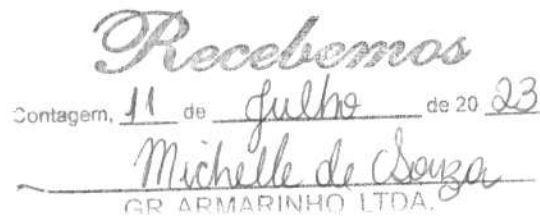 Recebemos
Contagem, 11 de Julho de 20 23
Michelle de Souza
GR ARMARINHO LTDA.